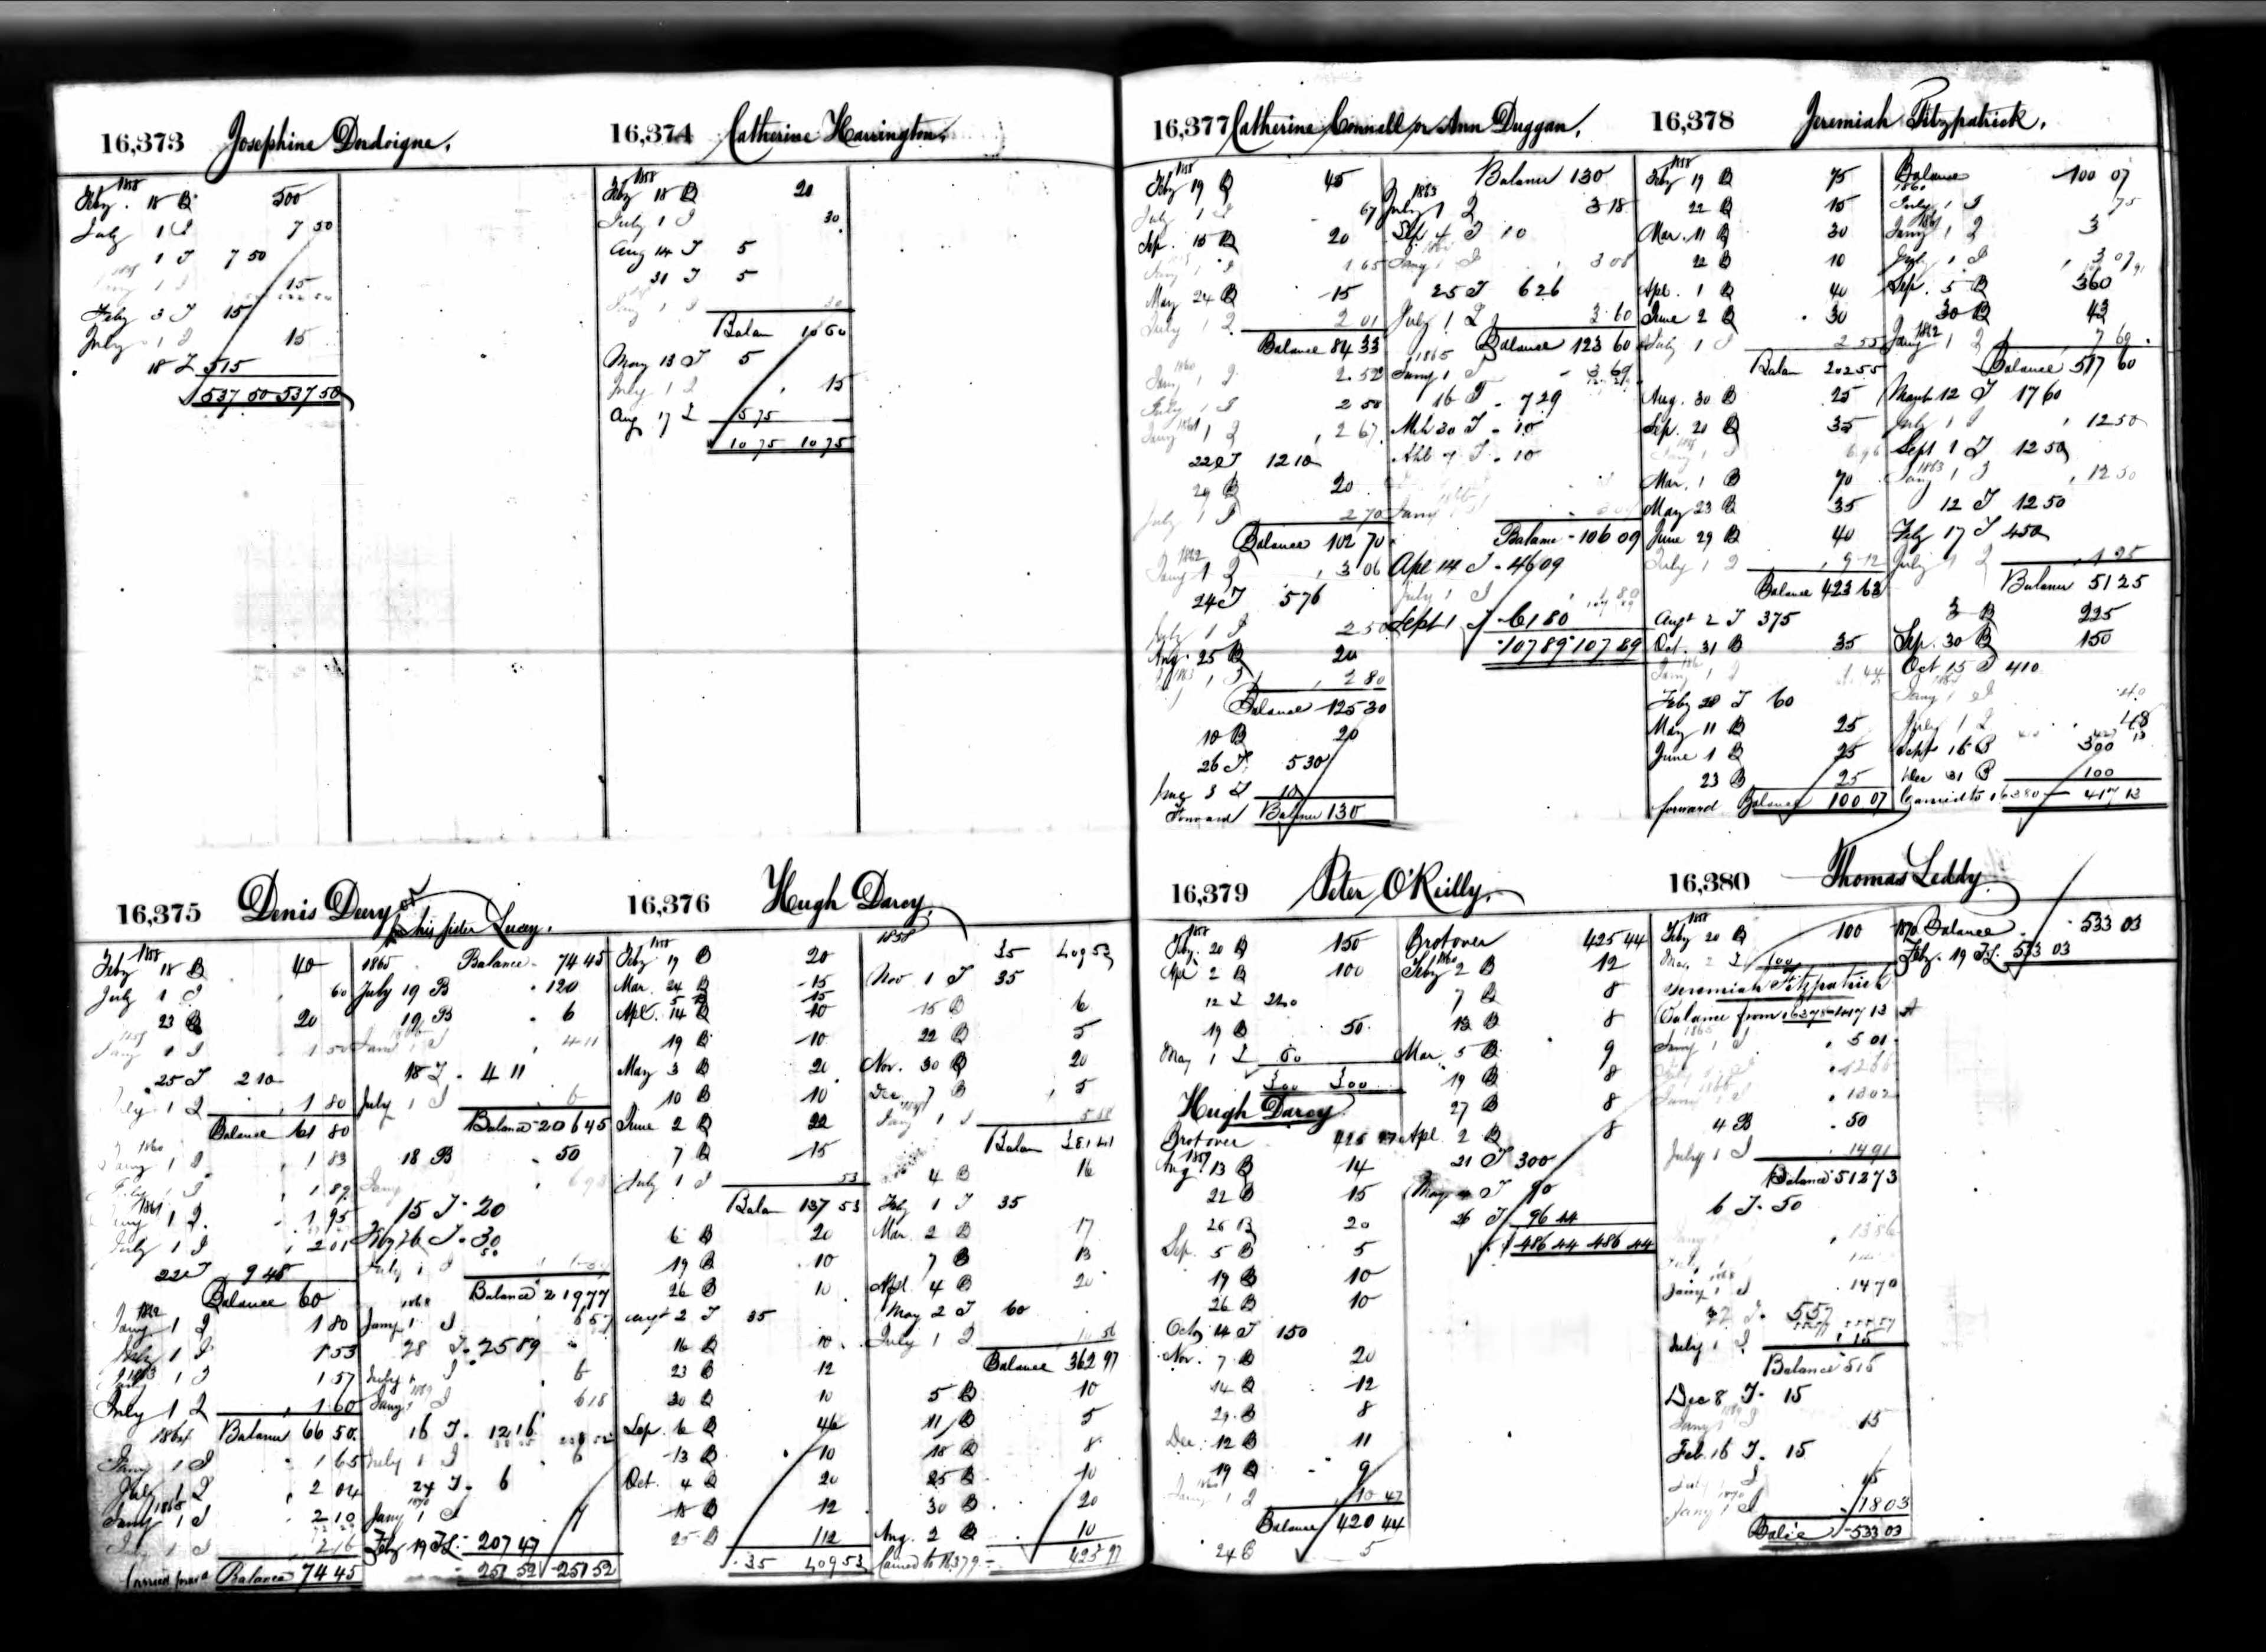 16,373 Josephine Dordoigne.
1858
Feby. 18 B 500
July 1 I 7 50
1 T 7 50
15
Feby 3 T 15
July 1 I 15
18 T 515
537 50 537 50
16,374 Catherine Harrington.
1858
Feby 18 B 20
July 1 I 30
Aug 14 T 5
31 T 5
Jany 1 I 30
Balan 10 60
May 13 T 5
July 1 I 15
Aug 17 T 5 75
10 75 10 75
16,375 Denis Deery or his sister Lucy.
1858
Feby 18 B 40
July 1 I 60
23 B 20
1859
Jany 1 I 1 50
25 T 2 10
July 1 I 1 80
Balance 61 80
1860
Jany 1 I 1 83
July 1 I 1 89
1861
Jany 1 I 1 95
July 1 I 2 01
22 T 9 48
Balance 60
1862
Jany 1 I 1 80
July 1 I 1 53
1863
Jany 1 I 1 57
July 1 I 1 60
1864 Balance 66 50
Jany 1 I 1 65
July 1 I 2 04
1865
Jany 1 I 2 10
July 1 I 2 16
Carried forward Balance 74 45
1865 Balance 74 45
July 19 B 120
19 B 6
1866
Jany 1 I 4 11
18 T 4 11
July 1 I 6
Balance 206 45
18 B 50
Jany
15 T 20
Feby 26 T 30
July 1 I
Balance 219 77
1868
Jany 1 I 6 57
28 T 25 89
July 1 I 6
1869
Jany 1 I 6 18
16 T 12 16
July 1 I 6
24 T 6
1870
Jany 1 I
Feby 19 T 207 47
251 52 251 52
16,376 Hugh Darcy.
1858
Feby 19 B 20
Mar. 24 B 15
5 B 15
Apl. 14 B 10
19 B 10
May 3 B 20
10 B 10
June 2 B 22
7 B 15
July 1 I 53
Balan 137 53
6 B 20
19 B 10
26 B 10
Augt 2 T 35
16 B 10
23 B 12
30 B 10
Sep. 6 B 46
13 B 10
Oct. 4 B 20
18 B 12
25 B 112
35 409 53
1858
35 409 53
Nov 1 T 35
15 B 6
22 B 5
Nov. 30 B 20
Dec 7 B 5
1859
Jany 1 I
Balan 381 41
4 B 16
Feby 1 T 35
Mar. 2 B 17
7 B 13
Apl. 4 B 20
May 2 T 60
July 1 I
Balance 362 97
5 B 10
11 B 5
18 B 8
25 B 10
30 B 20
Aug. 2 B 10
Carried to 16379 425 97
16,377 Catherine Connell or Ann Duggan.
1858
Feby 19 B 45
July 1 I 67
Sep. 15 B 20
1859
Jany 1 I 1 65
May 24 B 15
July 1 I 2 01
Balance 84 33
1860
Jany 1 I 2 52
July 1 I 2 58
1861
Jany 1 I 2 67
22 T 12 10
29 B 20
July 1 I 2 70
Balance 102 70
1862
Jany 1 I 3 06
24 T 5 76
July 1 I 2 50
Aug. 25 B 20
1863
1 I 2 80
Balance 125 30
10 B 20
26 T 5 30
June 3 T 10
Forward Balance 130
Balance 130
1863
July 1 I 3 18
Sep 4 T 10
1864
Jany 1 I 3 08
25 T 6 26
July 1 I 3 60
Balance 123 60
1865
Jany 1 I 3 69
16 T 7 29
Mch 30 T 10
Apl 4 T 10
1866
Jany 1
Balance 106 09
Apl 14 T 46 09
July 1 I 1 80
Sept 1 T 61 80
107 89 107 89
16,378 Jeremiah Fitzpatrick.
1858
Feby 19 B 75
22 B 15
Mar. 11 B 30
22 B 10
Apl. 1 B 40
June 2 B 30
July 1 I 2 55
Balan 202 55
Aug. 30 B 25
Sep. 20 B 35
1859
Jany 1 I 6 96
Mar. 1 B 70
May 23 B 35
June 29 B 40
July 1 I 9 12
Balance 423 63
Augt 2 T 375
Oct. 31 B 35
1860
Jany 1 I 1 44
Feby 28 T 60
May 11 B 25
June 1 B 25
23 B 25
forward Balance 100 07
Balance 100 07
1860
July 1 I 75
1861
Jany 1 I 3
July 1 I 3 09
Sep. 5 B 360
30 B 43
1862
Jany 1 I 7 69
Balance 517 60
March 12 T 17 60
July 1 I 12 50
Sept 1 T 12 50
1863
Jany 1 I 12 50
12 T 12 50
Feby 17 T 450
July 1 I 1 25
Balance 51 25
3 B 225
Sep. 30 B 150
Oct 15 T 410
1864
Jany 1 I 40
July 1 I 48
Sept 16 B 300
Dec 31 B 100
Carried to 16380 417 13
16,379 Peter O'Reilly.
1858
Feby. 20 B 150
Apl 2 B 100
12 T 240
19 B 50
May 1 T 60
300 300
Hugh Darcy
Brot over 425 97
1859
Aug 13 B 14
22 B 15
26 B 20
Sep. 5 B 5
19 B 10
26 B 10
Octo 14 T 150
Nov. 7 B 20
14 B 12
29 B 8
Dec. 12 B 11
19 B 9
1860
Jany 1 I 10 47
Balance 420 44
24 B 5
Brot over 425 44
1860
Feby 2 B 12
7 B 8
13 B 8
Mar 5 B 9
19 B 8
27 B 8
Apl. 2 B 8
21 T 300
May 4 T 90
26 T 96 44
486 44 486 44
16,380 Thomas Leddy.
1858
Feby 20 B 100
Mar. 2 T 100
Jeremiah Fitzpatrick
Balance from 16378 417 13
1865
Jany 1 I 5 01
July 1 I 12 66
1866
Jany 1 I 13 02
4 B 50
July 1 I 14 91
Balance 512 73
6 T 50
Jany 1 I 13 86
1868
Jany 1 I 14 70
27 T 5 57
July 1 I 15
Balance 515
Dec 8 T 15
1869
Jany 1 I 15
Feb 16 T 15
July 1 I 15
1870
Jany 1 I 18 03
Bal'ce 533 03
1870 Balance 533 03
Feby. 19 T 533 03